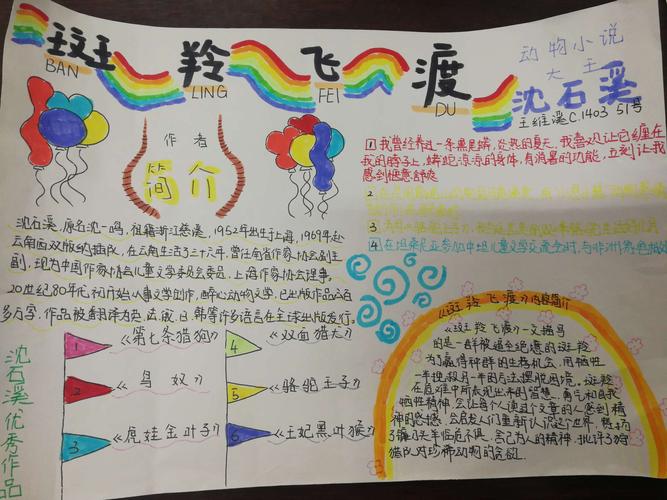 斑 羚 飞 渡
BAN LING FEI DU
动物小说
大王
沈石溪
王维溪C.1403 51号
作者
简介
沈石溪,原名沈一鸣,祖籍浙江慈溪,1952年出生于上海,1969年赴
云南西双版纳插队,在云南生活了三十六年,曾任云南省作家协会副主
副,现为中国作家协会儿童文学委员会委员,上海作家协会理事。
20世纪80年代初开始从事文学创作,醉心动物文学,已出版作品五百
多万字,作品被翻译为英、法、俄、日、韩等许多语言在全球出版发行。
1 我曾经养过一条黑尾蟒,炎热的夏天,我喜欢让它缠在
我的脖子上,蟒蛇凉凉的身体,有消暑的功能,立刻让我
感到惬意舒爽
2
3
4 在坦桑尼亚参加中坦儿童文学交流会时,与非洲
沈石溪优秀作品
1 《第七条猎狗》
2 《鸟奴》
3 《虎娃金叶子》
4 《双面猎犬》
5 《骆驼王子》
6 《王妃黑叶猴》
《斑羚飞渡》内容简介
《斑羚飞渡》一文描写
的是一群被逼至绝境的斑羚
为了赢得种群的生存机会,用牺牲
一半挽救另一半的方法摆脱困境。斑羚
在危难中所表现出来的智慧、勇气和自我
牺牲精神,会让每个人读这个文章的人感到精
神的震撼,会启发人们重新认识这个世界,
了镰刀头羊临危不惧、舍己为人的精神,批评了狩
猎队对珍稀动物的贪欲。